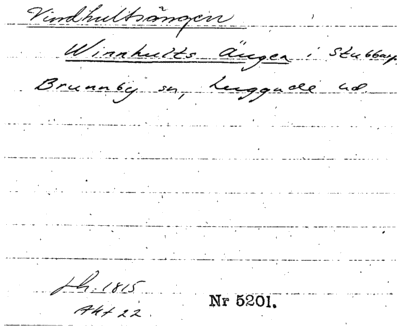 Vindhultsängen
Winnhults Ängen i Stubbarp
Brunnby sn, Luggude hd
sk. 1815
Akt 22.
Nr 5201.